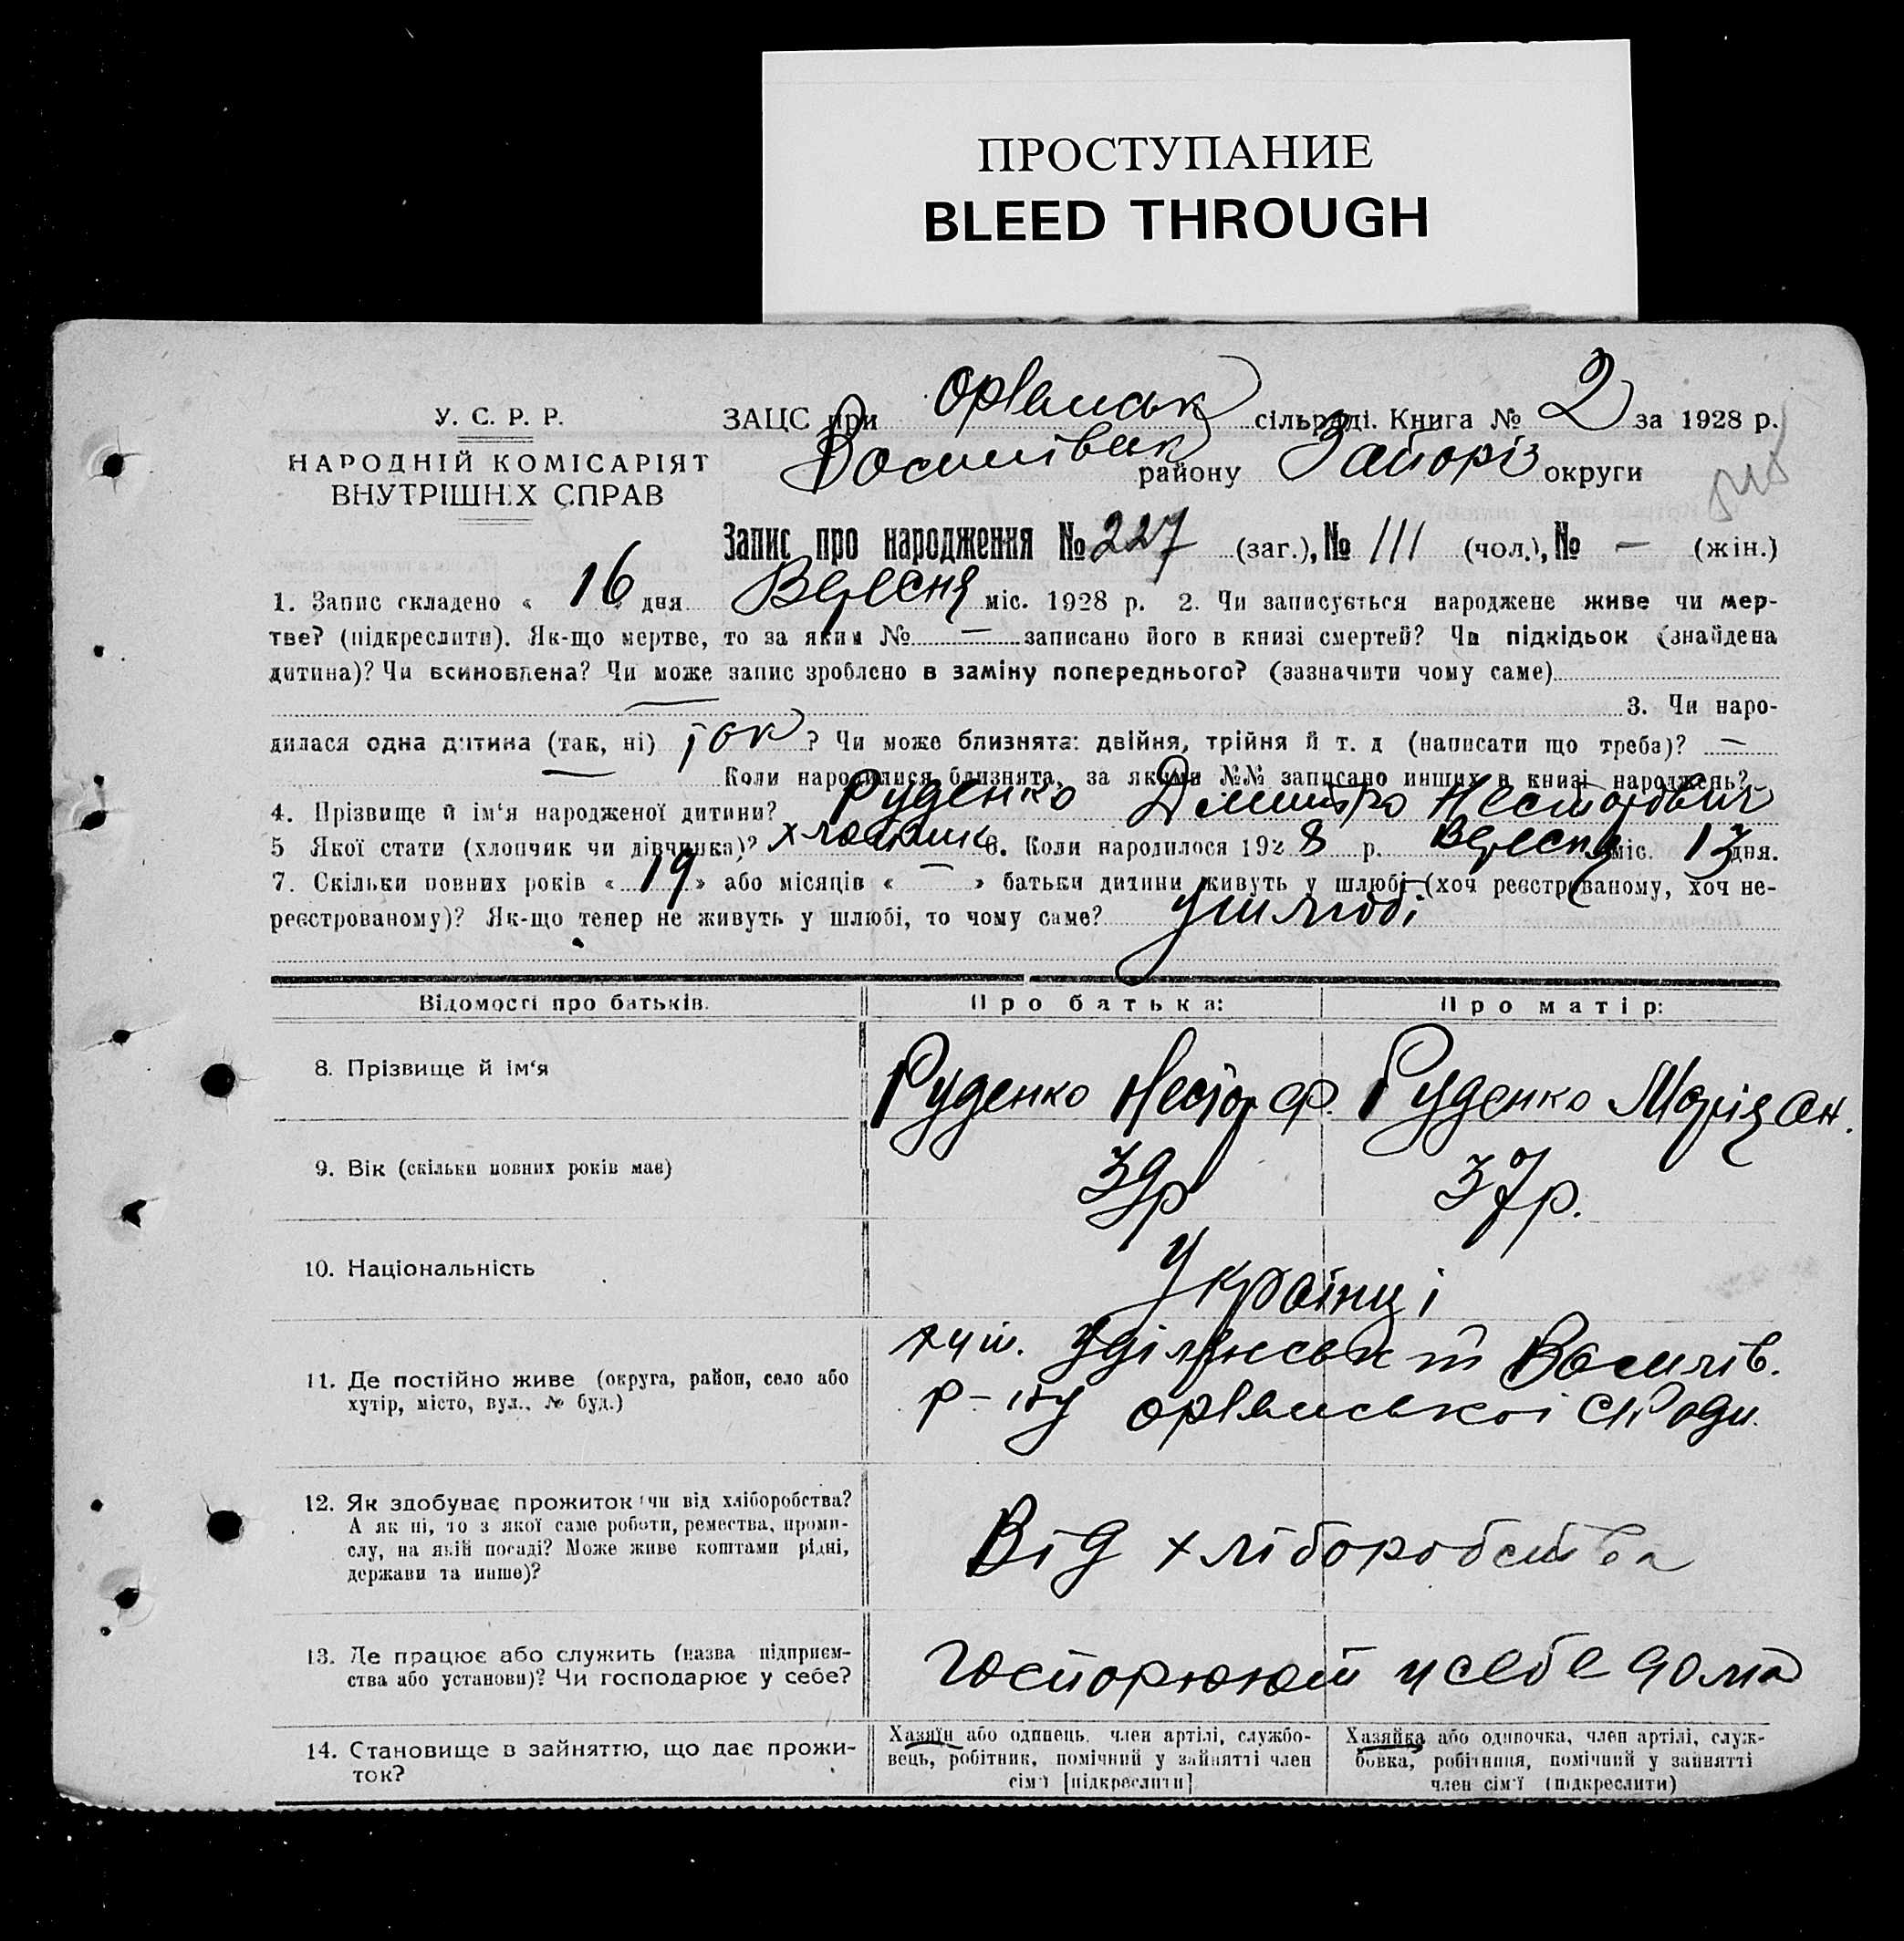 ПРОСТУПАНИЕ
BLEED THROUGH
У. С. Р. Р.
НАРОДНІЙ КОМІСАРІЯТ
ВНУТРІШНІХ СПРАВ
ЗАЦС при Орлянськ сільраді. Книга № 2 за 1928 р.
Василівськ району Запоріз округи
Запис про народження № 227 (заг.), № 111 (чол.), № — (жін.)
1. Запис складено « 16 » дня Вересня міс. 1928 р. 2. Чи записується народжене живе чи мер-
тве? (підкреслити). Як-що мертве, то за яким № — записано його в книзі смертей? Чи підкідьок (знайдена
дитина)? Чи всиновлена? Чи може запис зроблено в заміну попереднього? (зазначити чому саме)
— 3. Чи наро-
дилася одна дитина (так, ні) так ? Чи може близнята: двійня, трійня й т. д (написати що треба)? —
— Коли народилися близнята, за якими №№ записано инших в книзі народжень?
4. Прізвище й ім'я народженої дитини? Руденко Дмитро Несторович
5 Якої стати (хлопчик чи дівчинка)? хлопчик 6. Коли народилося 1928 р. Вересня міс. 13 дня.
7. Скільки повних років « 19 » або місяців « — » батьки дитини живуть у шлюбі (хоч реєстрованому, хоч не-
реєстрованому)? Як-що тепер не живуть у шлюбі, то чому саме? У шлюбі
Відомості про батьків. Про батька: Про матір:
8. Прізвище й ім'я Руденко Нестор Ф. Руденко Марія Ан.
9. Вік (скільки повних років має) 39р 37р.
10. Національність Українці
11. Де постійно живе (округа, район, село або
хутір, місто, вул., № буд.)
Василів.
р-ну Орлянської с/Ради.
12. Як здобуває прожиток чи від хліборобства?
А як ні, то з якої саме роботи, ремества, проми-
слу, на якій посаді? Може живе коштами рідні,
держави та инше)?
Від хліборобства
13. Де працює або служить (назва підприєм-
ства або установи)? Чи господарює у себе?
у себе дома
14. Становище в зайняттю, що дає прожи-
ток?
Хазяїн або одинець, член артілі, службо-
вець, робітник, помічний у зайнятті член
сім'ї [підкреслити]
Хазяйка або одиночка, член артілі, служ-
бовка, робітниця, помічний у зайнятті
член сім'ї (підкреслити)